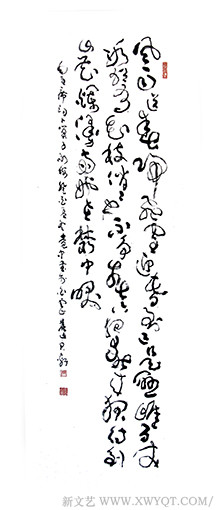 风雨送春归飞雪迎春到已是悬崖百丈
冰犹有花枝俏俏也不争春只把春来报待到
山花烂漫时她在丛中笑
毛主席词卜算子咏梅
新文艺 / WWW.XWYQT.COM/